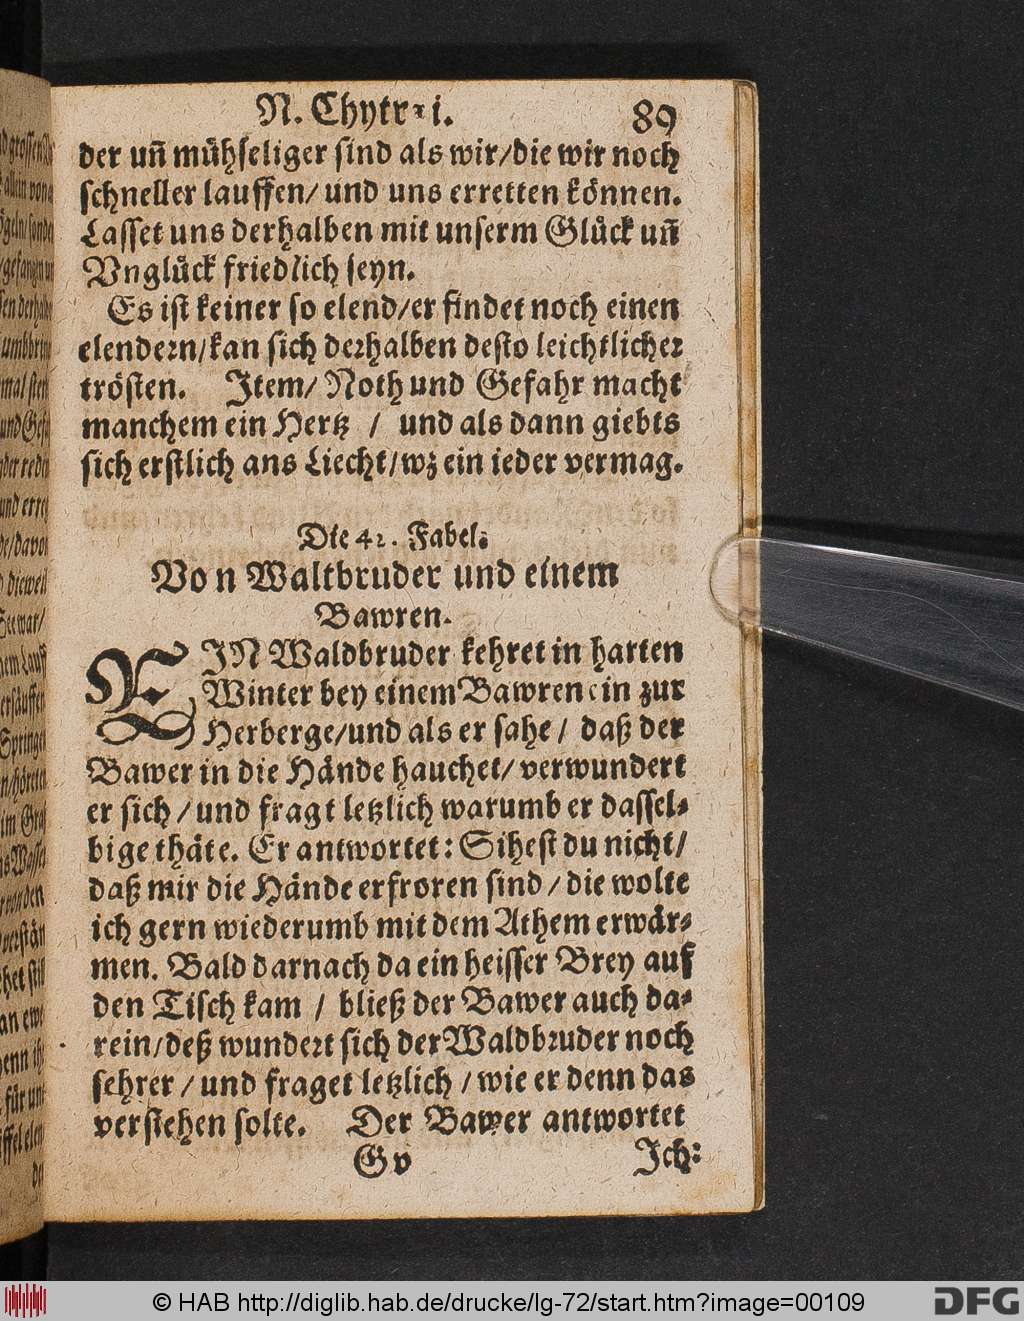 N. Chytræi. 89
der uñ mühseliger sind als wir/die wir noch
schneller lauffen/ und uns erretten können.
Lasset uns derhalben mit unserm Glück uñ
Vnglück friedlich seyn.
Es ist keiner so elend/er findet noch einen
elendern/kan sich derhalben desto leichtlicher
trösten. Item/ Noth und Gefahr macht
manchem ein Hertz / und als dann giebts
sich erstlich ans Liecht/wz ein ieder vermag.
Die 42. Fabel.
Von Waltbruder und einem
Bawren.
EIN Waldbruder kehret in harten
Winter bey einem Bawren ein zur
Herberge/und als er sahe / daß der
Bawer in die Hände hauchet/ verwundert
er sich / und fragt letzlich warumb er dassel-
bige thäte. Er antwortet: Sihest du nicht/
daß mir die Hände erfroren sind / die wolte
ich gern wiederumb mit dem Athem erwär-
men. Bald darnach da ein heisser Brey auf
den Tisch kam / bließ der Bawer auch da-
rein/deß wundert sich der Waldbruder noch
sehrer / und fraget letzlich / wie er denn das
verstehen solte. Der Bawer antwortet
Gv Ich:
© HAB http://diglib.hab.de/drucke/lg-72/start.htm?image=00109
DFG